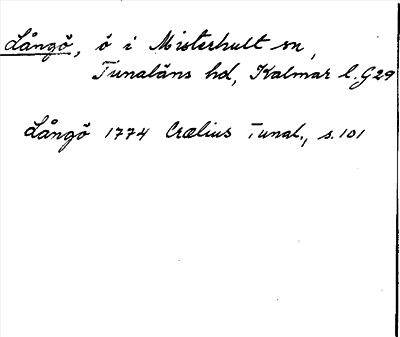 Långö, ö i Misterhult sn,
Tunaläns hd, Kalmar l. G29
Långö 1774 Crælius Tunal., s. 101